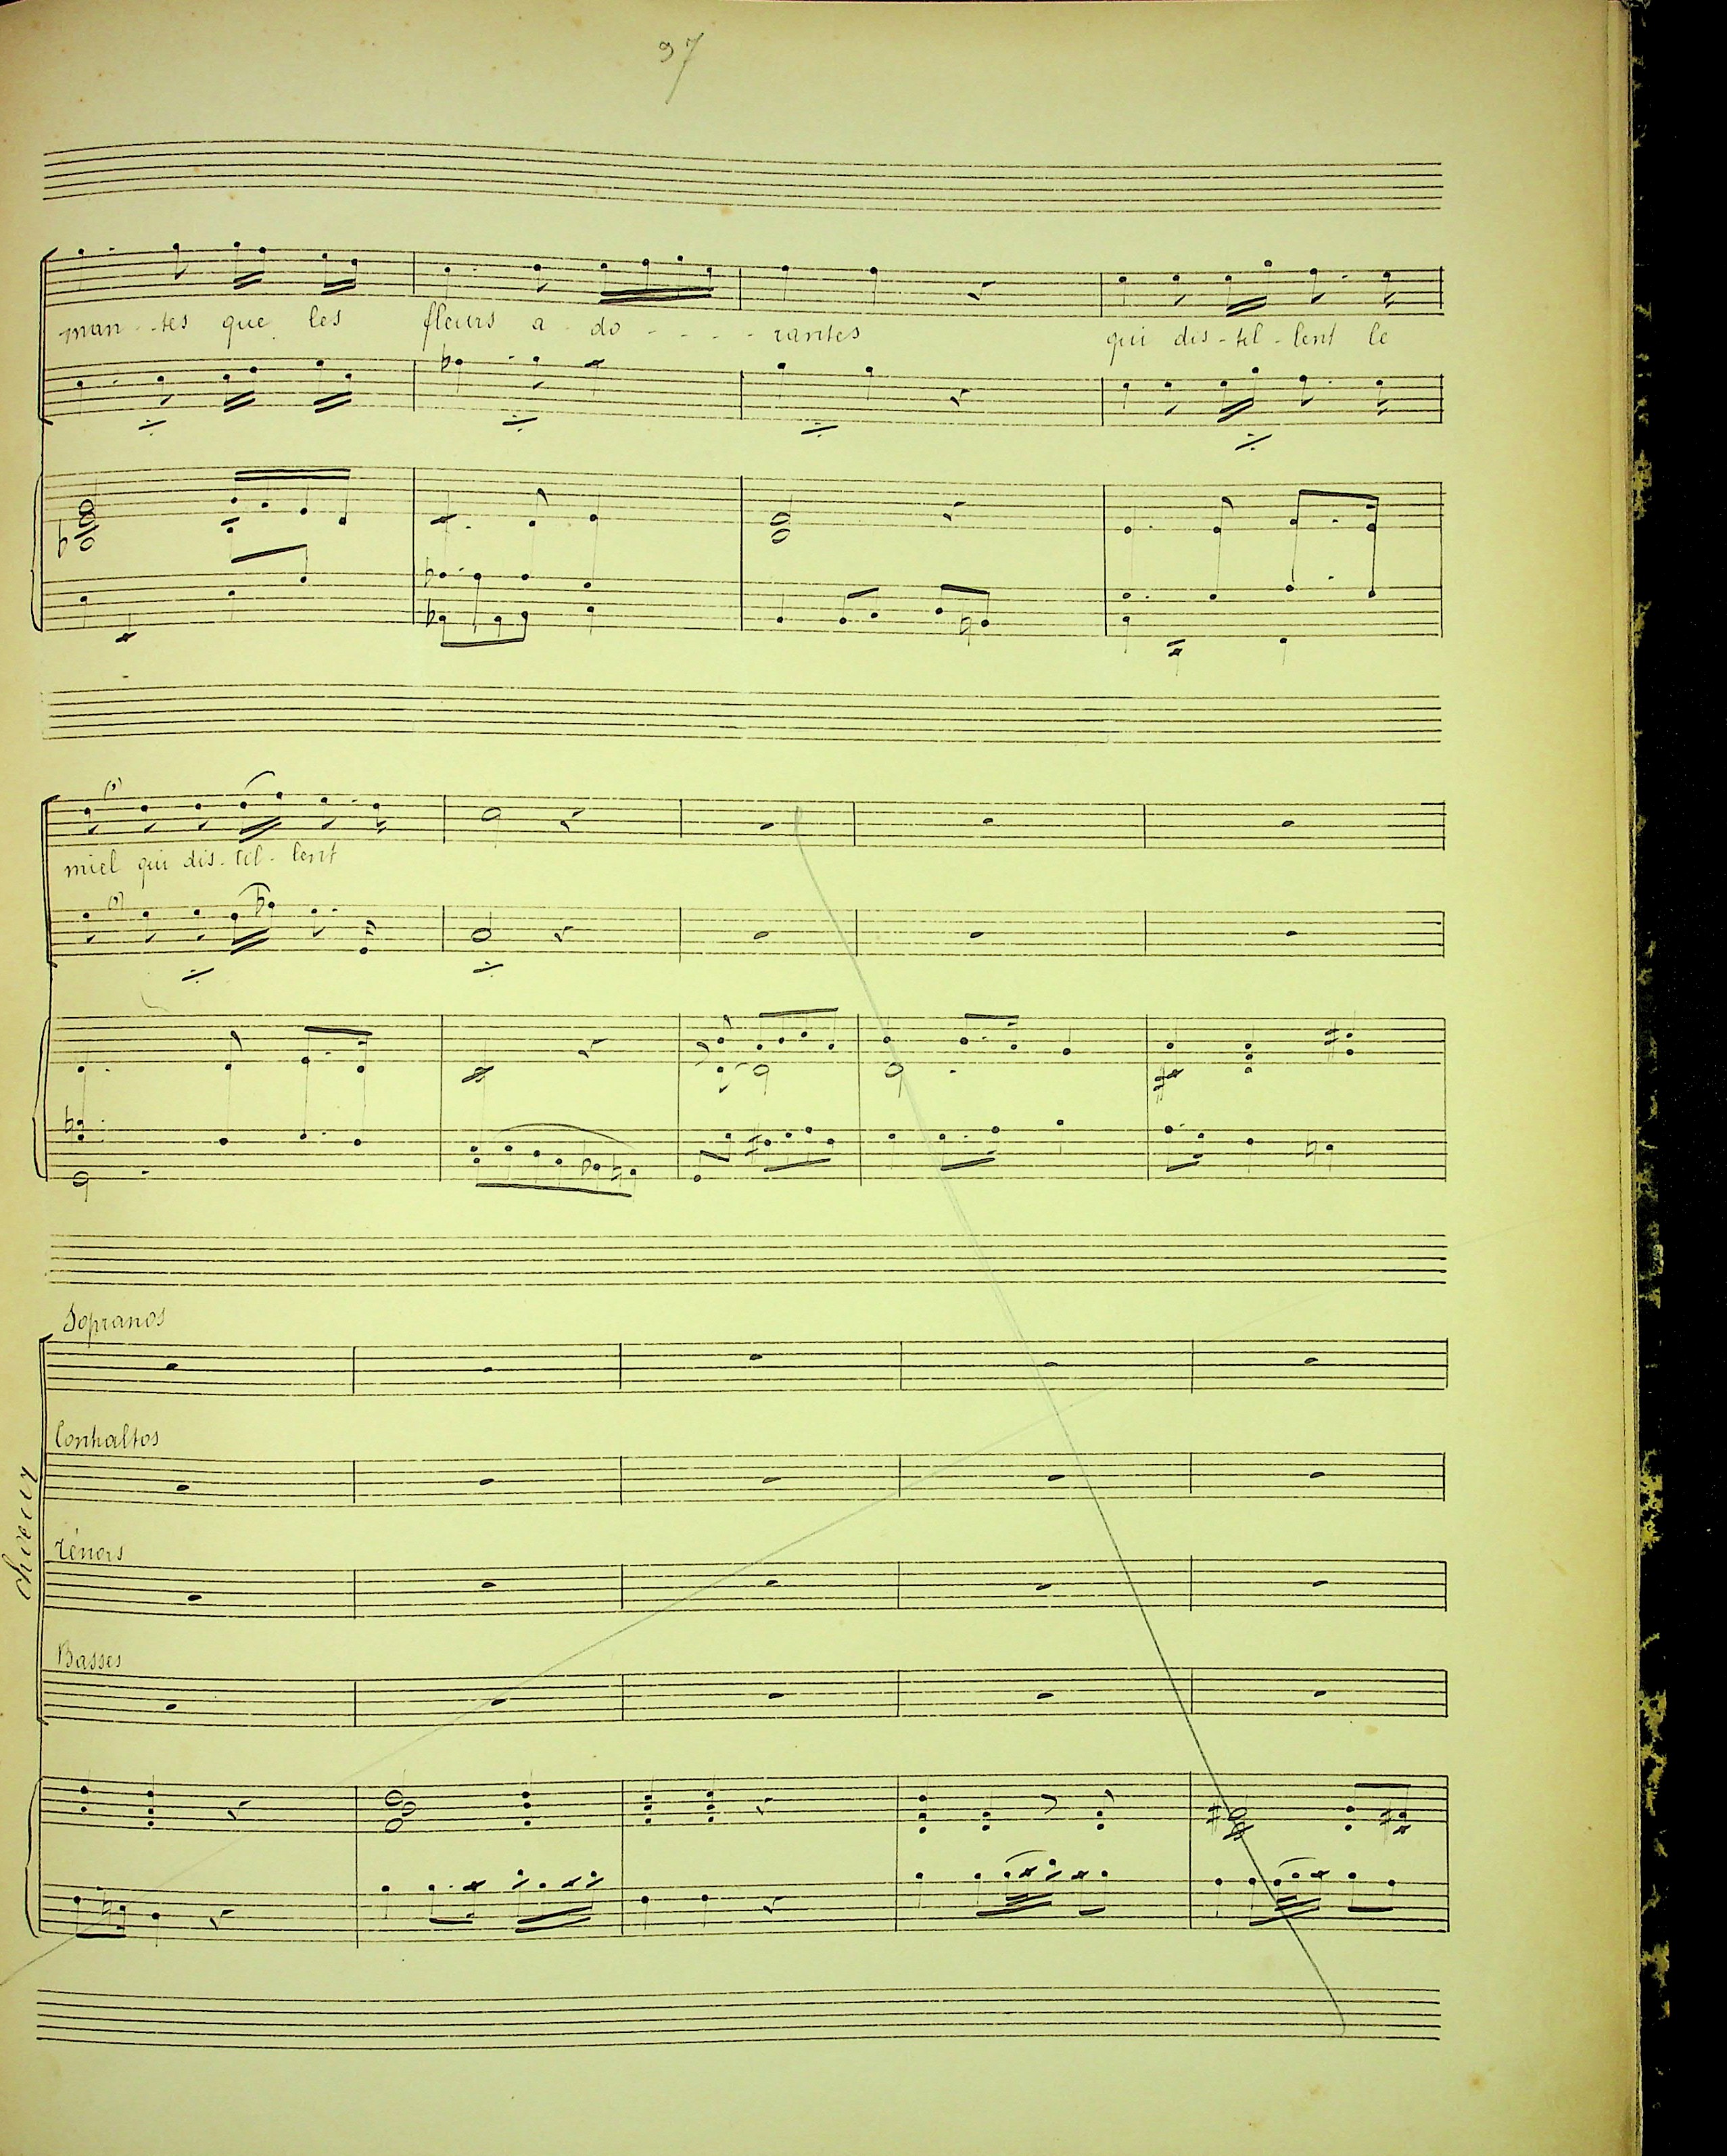 97
man - tes que les fleurs a - do - - - - rantes qui dis - til - lent le
miel qui dis - til - lent
Sopranos
Contraltos
Ténors
Basses
chœur